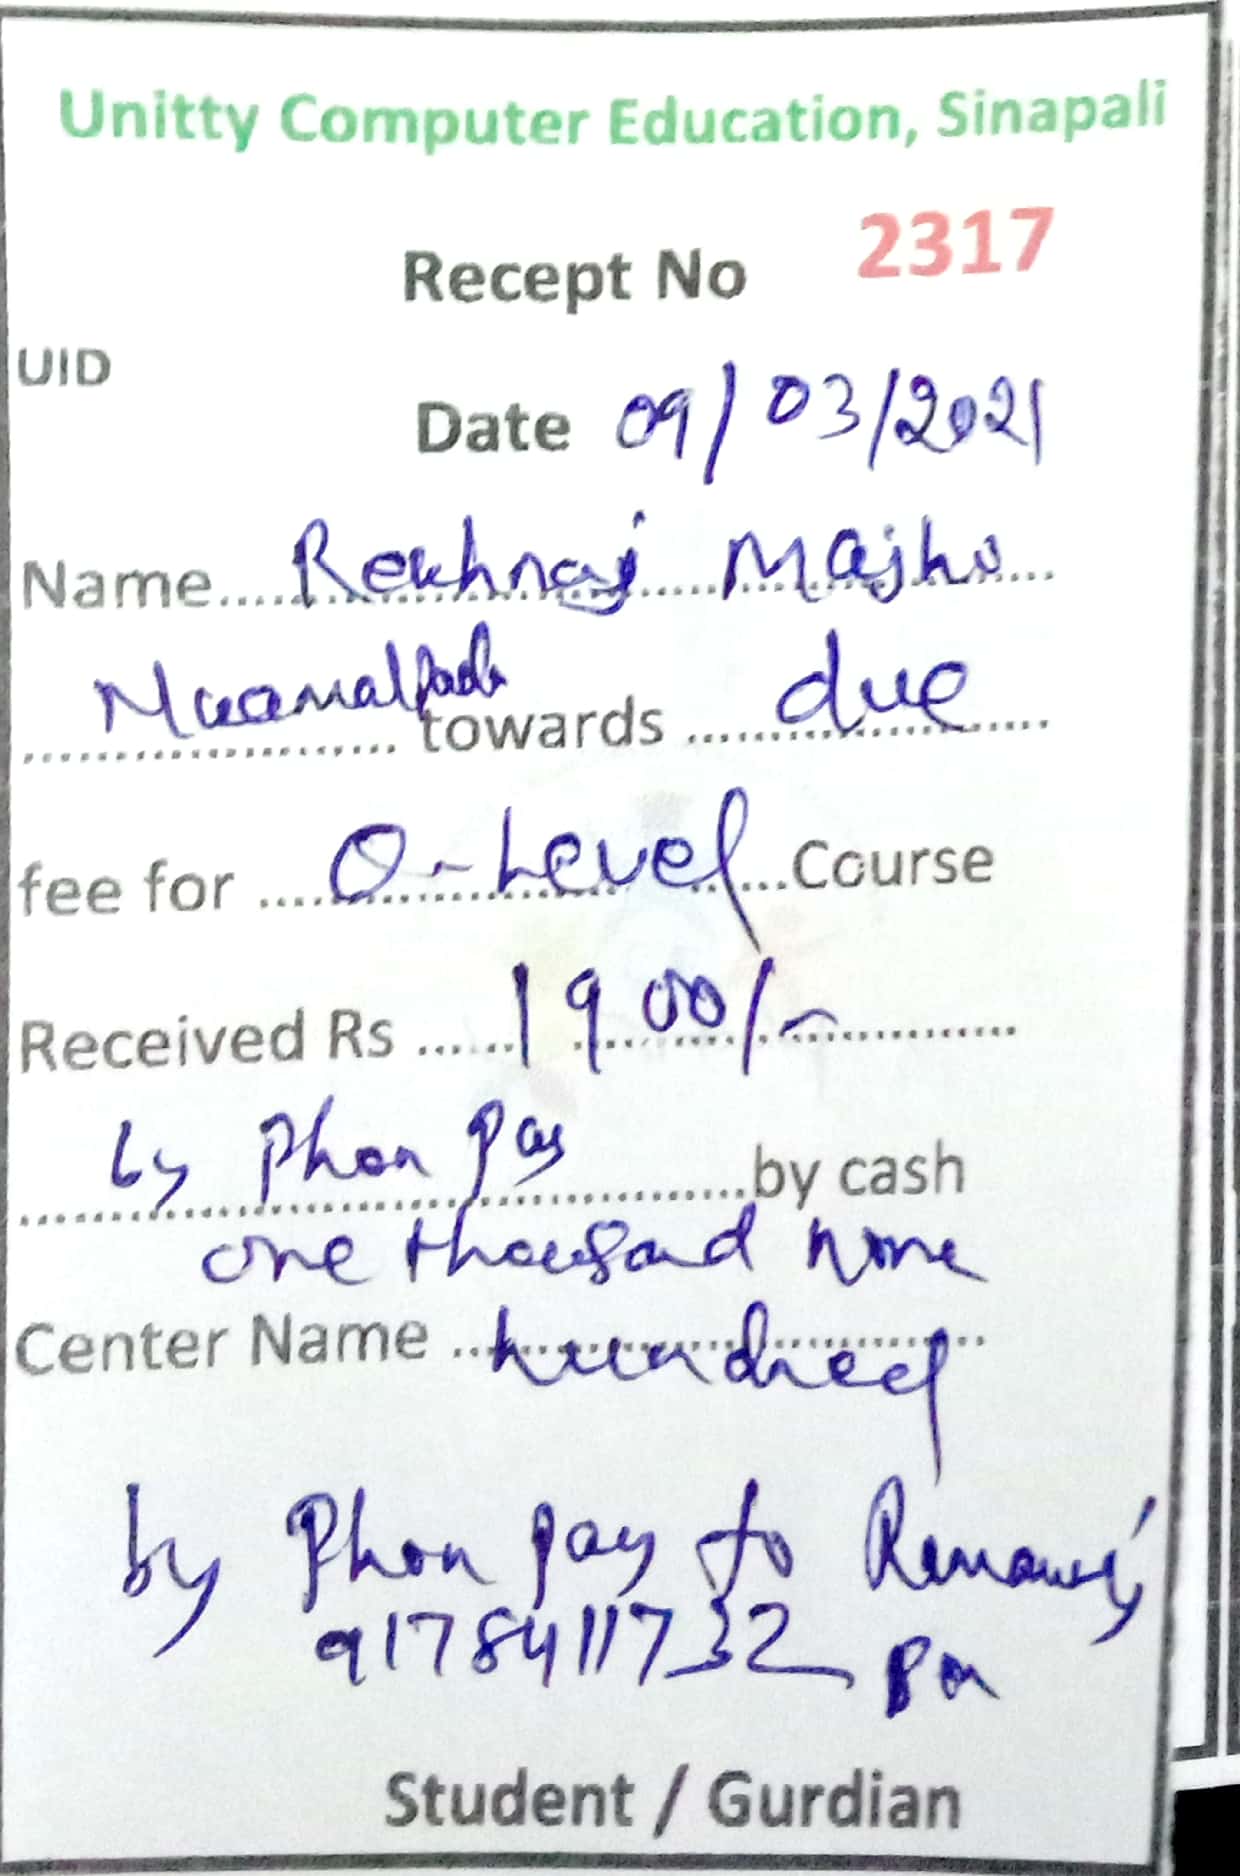 Unitty Computer Education, Sinapali
Recept No 2317
UID
Date 09/03/2021
Name.... Rekhraj Majhi
towards due
fee for .... O-Level ...Course
Received Rs ...... 1900/-
by Phon Pay ...by cash
one thousand nine
Center Name .. hundred
by Phon pay to
9178411732
Student / Gurdian